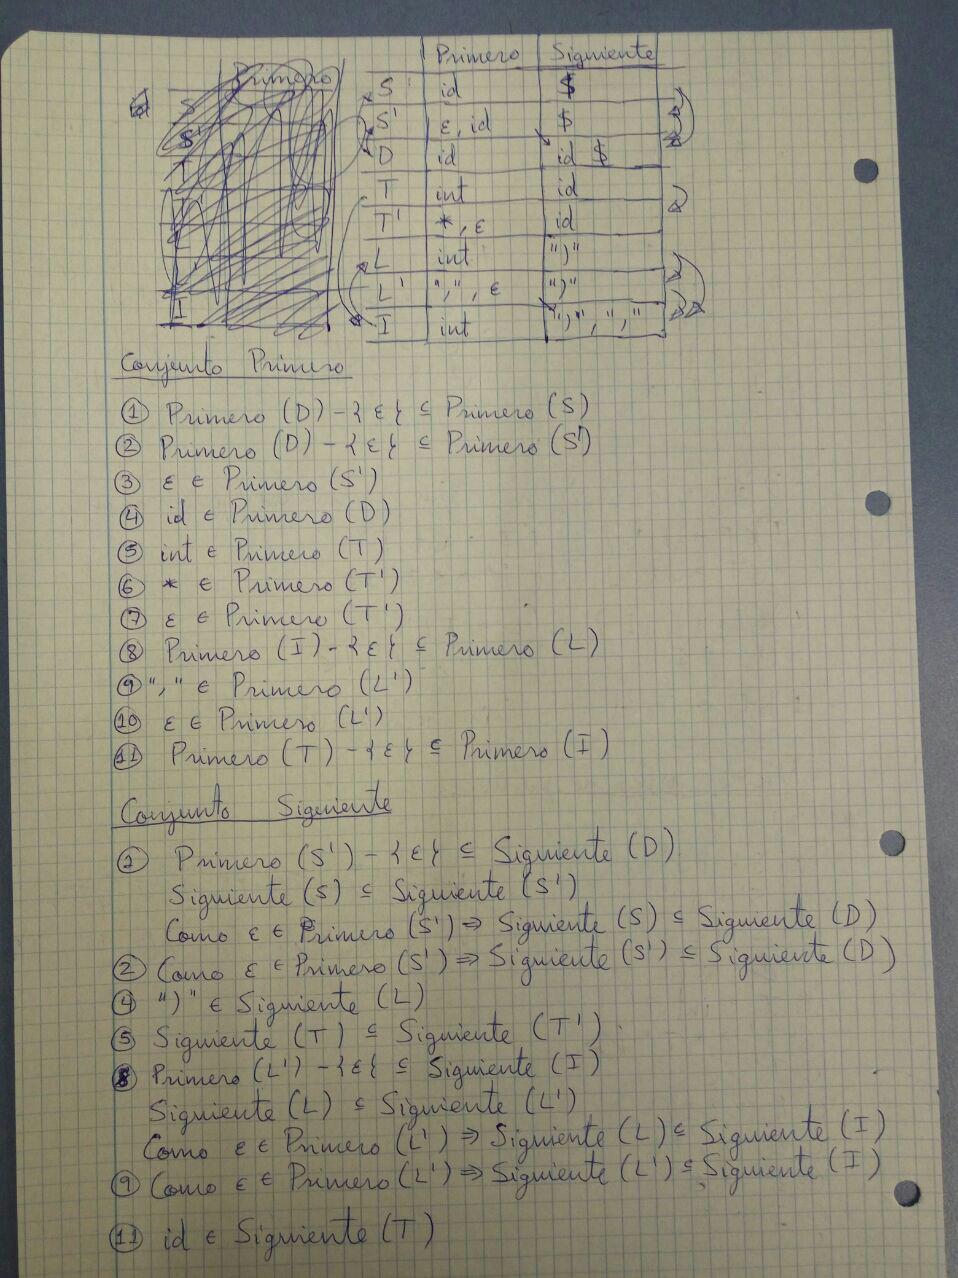 Primero
S
S'
T
I
Primero Siguiente
S id $
S' ε, id $
D id id $
T int id
T' *, ε id
L int ")"
L' ",", ε ")"
I int ")", ","
Conjunto Primero
① Primero (D) - {ε} ⊆ Primero (S)
② Primero (D) - {ε} ⊆ Primero (S')
③ ε ∈ Primero (S')
④ id ∈ Primero (D)
⑤ int ∈ Primero (T)
⑥ * ∈ Primero (T')
⑦ ε ∈ Primero (T')
⑧ Primero (I) - {ε} ⊆ Primero (L)
⑨ "," ∈ Primero (L')
⑩ ε ∈ Primero (L')
⑪ Primero (T) - {ε} ⊆ Primero (I)
Conjunto Siguiente
① Primero (S') - {ε} ⊆ Siguiente (D)
Siguiente (S) ⊆ Siguiente (S')
Como ε ∈ Primero (S') ⇒ Siguiente (S) ⊆ Siguiente (D)
② Como ε ∈ Primero (S') ⇒ Siguiente (S') ⊆ Siguiente (D)
④ ")" ∈ Siguiente (L)
⑤ Siguiente (T) ⊆ Siguiente (T')
⑧ Primero (L') - {ε} ⊆ Siguiente (I)
Siguiente (L) ⊆ Siguiente (L')
Como ε ∈ Primero (L') ⇒ Siguiente (L) ⊆ Siguiente (I)
⑨ Como ε ∈ Primero (L') ⇒ Siguiente (L') ⊆ Siguiente (I)
⑪ id ∈ Siguiente (T)